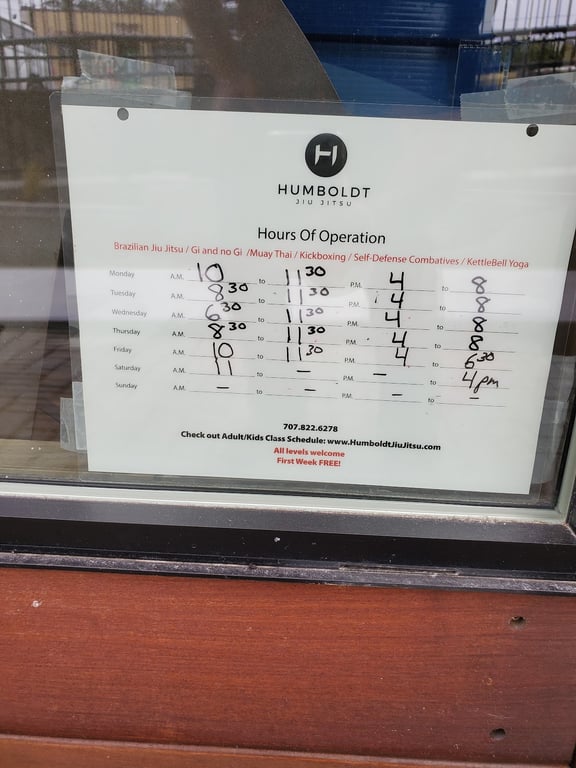 H
HUMBOLDT
JIU JITSU
Hours Of Operation
Brazilian Jiu Jitsu / Gi and no Gi /Muay Thai / Kickboxing / Self-Defense Combatives / KettleBell Yoga
Monday A.M. 10 to 11 30 P.M. 4 to 8
Tuesday A.M. 8 30 to 11 30 P.M. 4 to 8
Wednesday A.M. 6 30 to 11 30 P.M. 4 to 8
Thursday A.M. 8 30 to 11 30 P.M. 4 to 8
Friday A.M. 10 to 11 30 P.M. 4 to 6 30
Saturday A.M. 11 to – P.M. – to 4 pm
Sunday A.M. – to – P.M. – to –
707.822.6278
Check out Adult/Kids Class Schedule: www.HumboldtJiuJitsu.com
All levels welcome
First Week FREE!